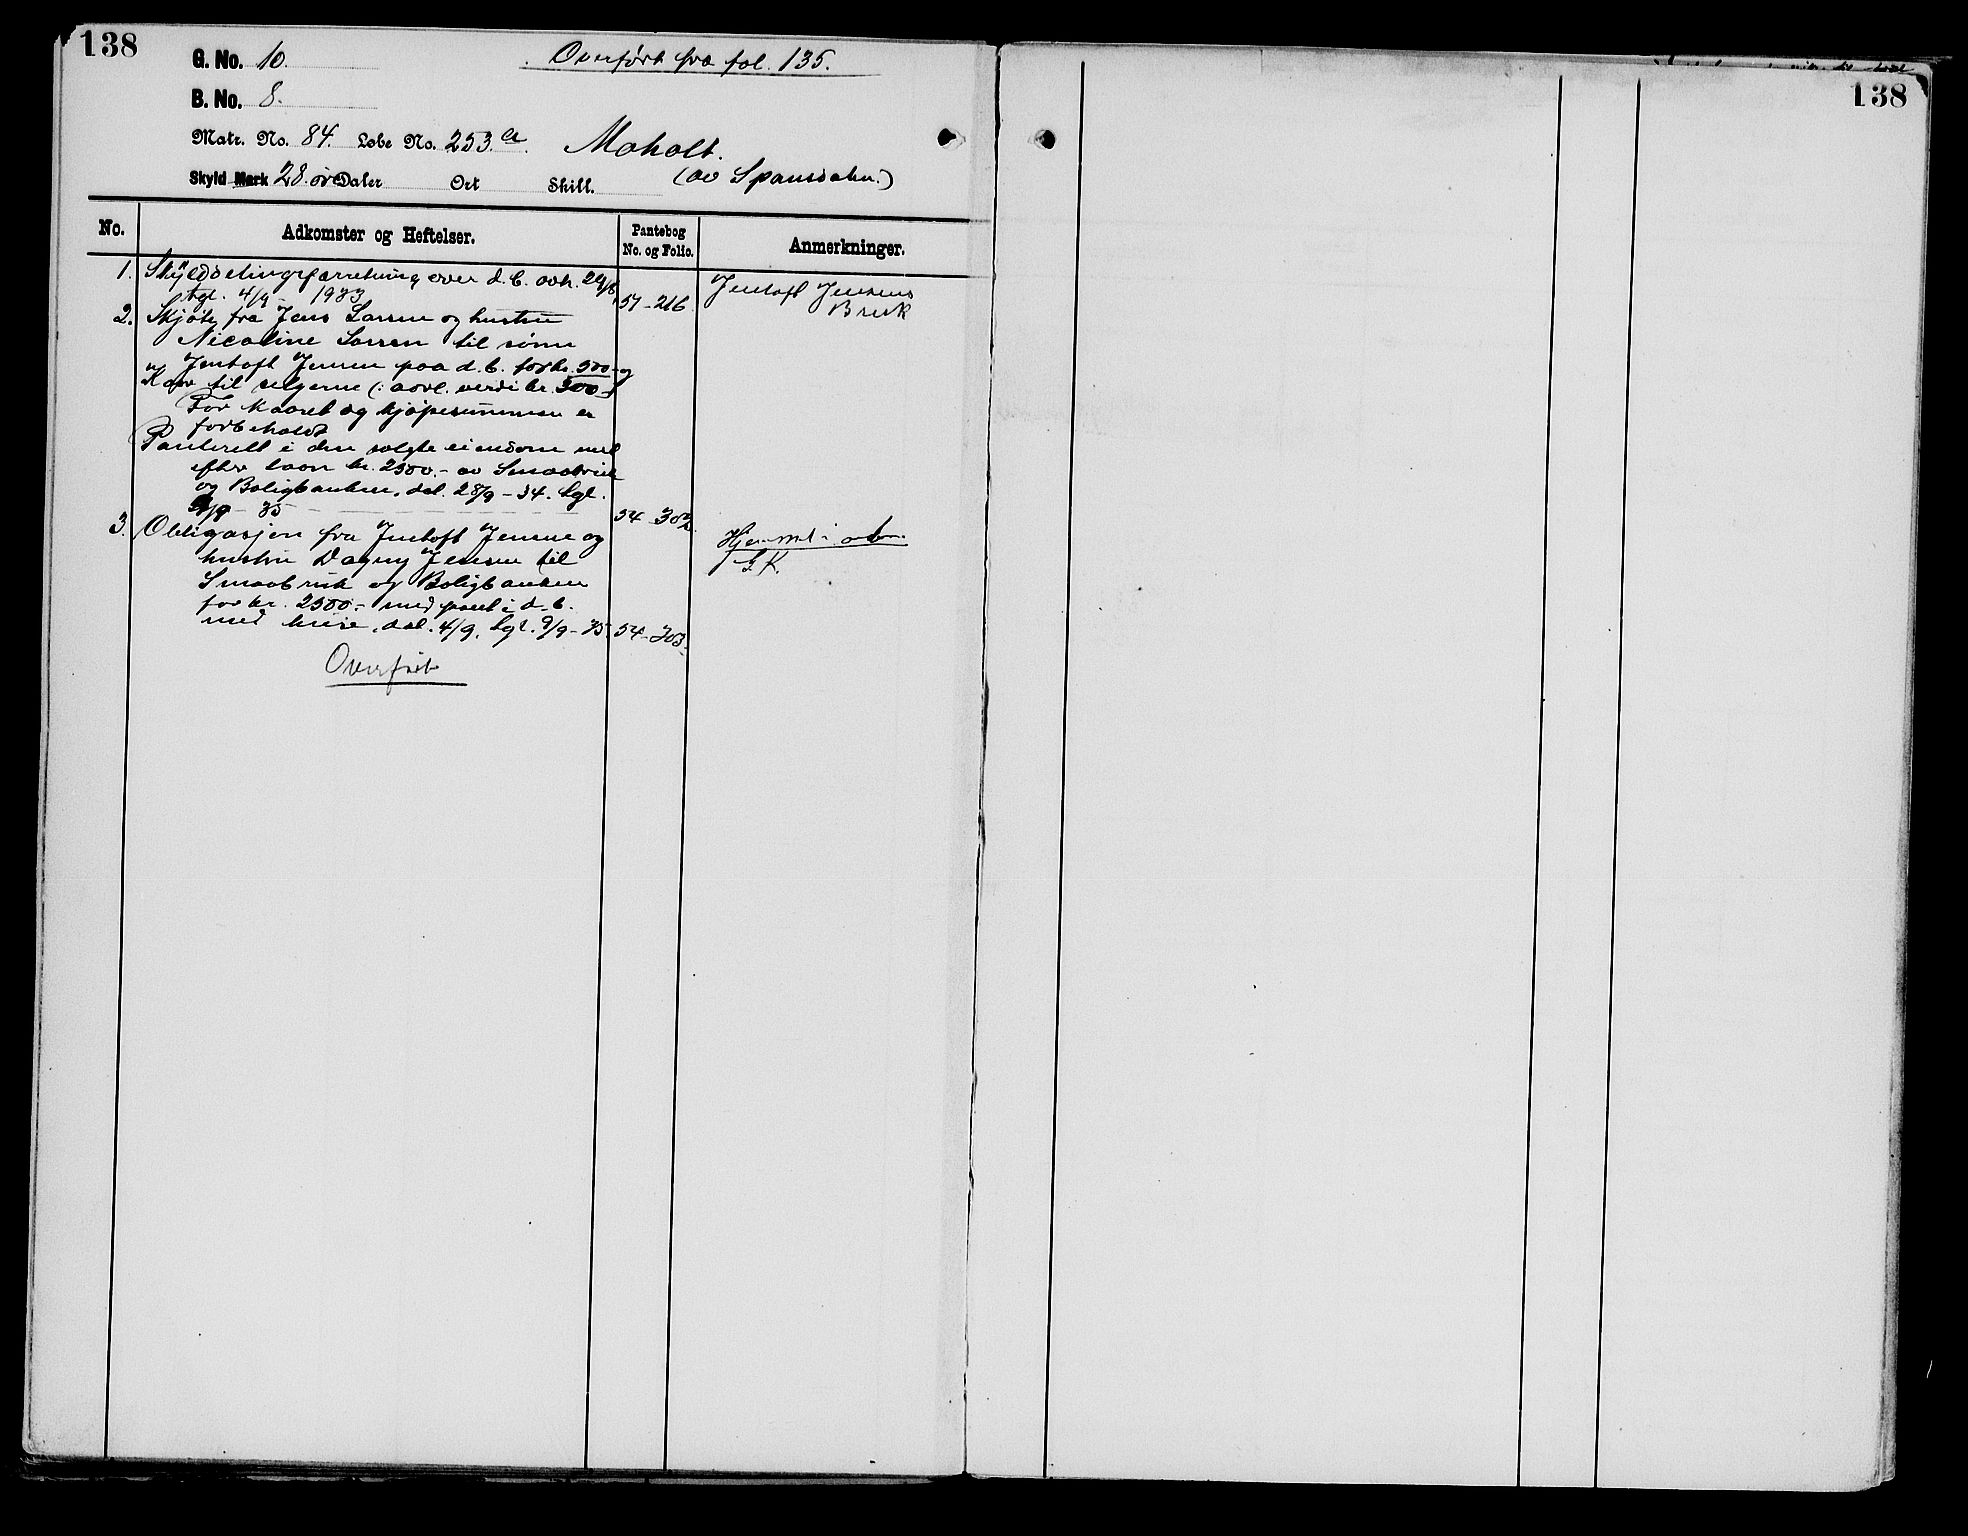 138
G. No. 10.
Overført fra fol. 135.
B. No. 8.
Matr. No. 84. Løbe No. 253.a. Moholt.
Skyld Mark 28. øre Daler Ort Skill. (av Spansdalen.)
No. Adkomster og Heftelser. Pantebog No. og Folio. Anmerkninger.
1. Skylddelingsforretning over d. b. avh. 29/8,
tgl. 4/9 - 1933 51-216
Jentoft Jensens
Bruk
2. Skjøte fra Jens Larsen og hustru
Nicoline Larsen til sønn
Jentoft Jensen paa d. b. for kr. 500.- og
Kaar til selgerne (: aarl. verdi kr. 300.-)
For kaaret og kjøpesummen er
forbeholdt
Panterett i den solgte eiendom med
efter laan kr. 2500.- av Smaabruk
og Boligbanken, dat. 28/9 - 34. tgl.
9/9 - 35 54-302
3. Obligasjon fra Jentoft Jensen og
hustru Dagny Jensen til
Smaabruk og Boligbanken
for kr. 2500.- med pant i d. b.
med huse, dat. 4/9, tgl. 9/9 - 35. 54-303.
Hjemmel i orden.
Overført
138